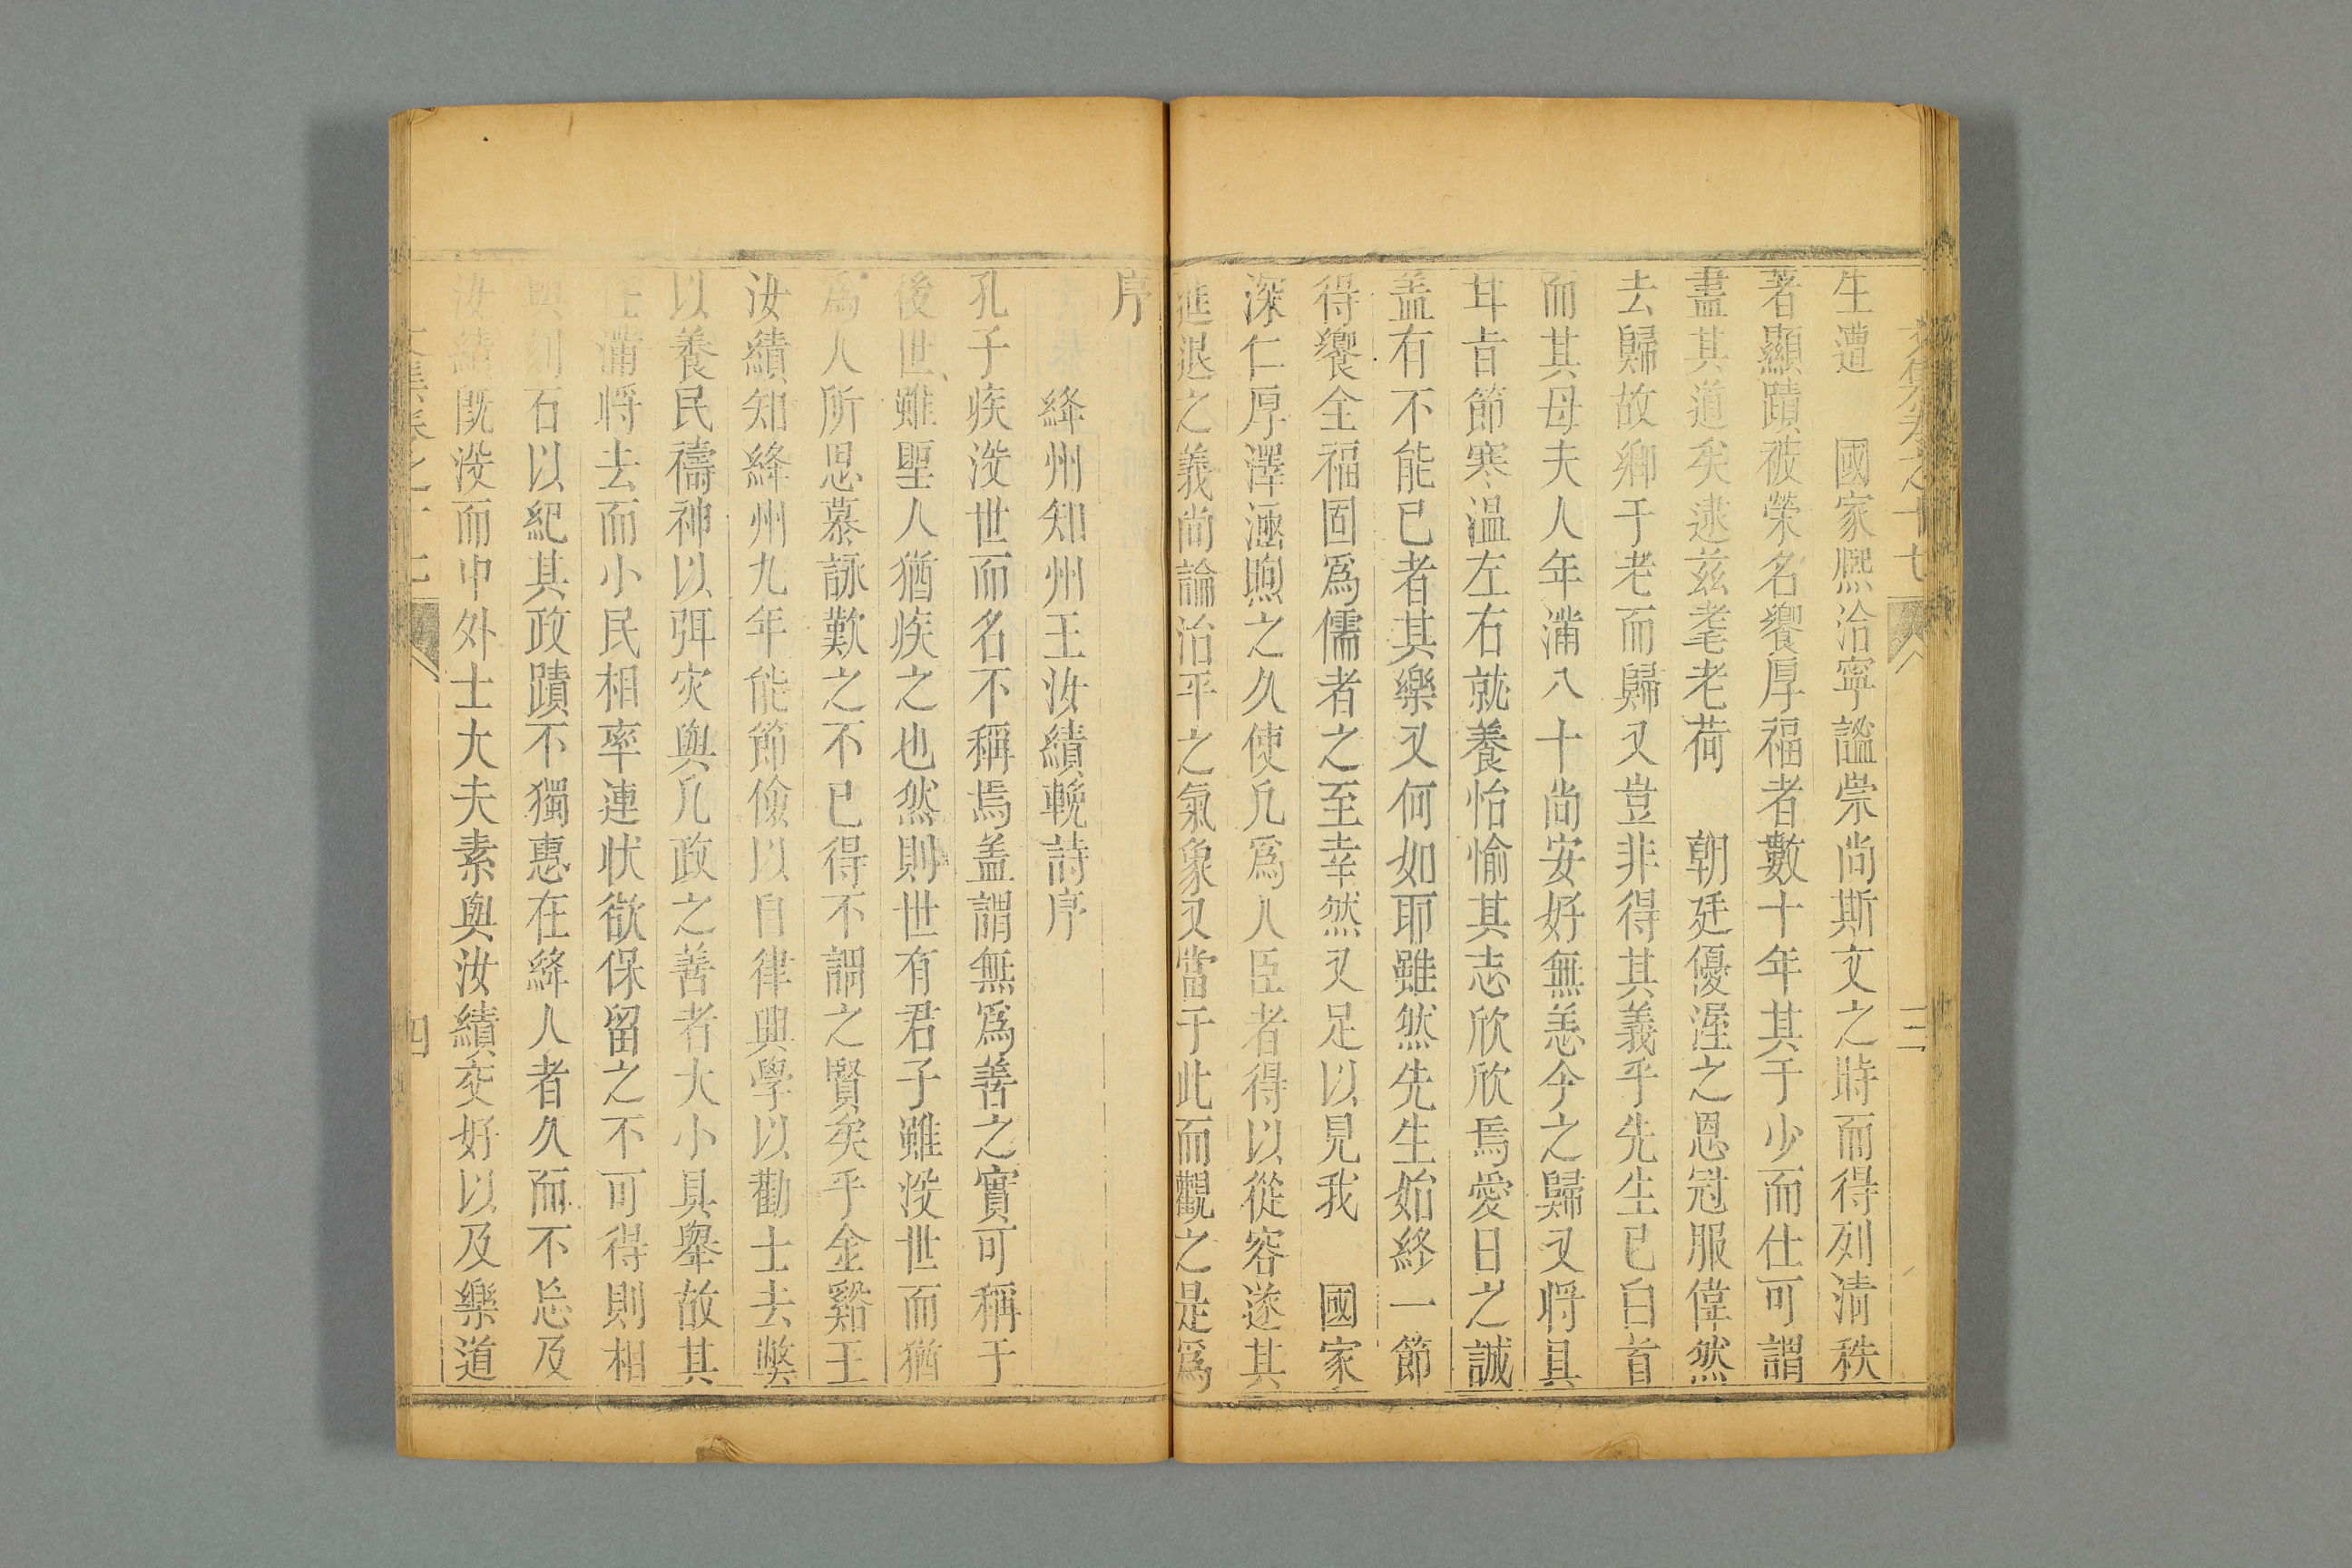 文集卷之十七
三
生遭　國家熈洽寧謐崇尚斯文之時而得列清秩
著顯蹟被榮名饗厚福者數十年其于少而仕可謂
盡其道矣逮兹耄老荷　朝廷優渥之恩冠服偉然
去歸故鄉于老而歸又豈非得其義乎先生已白首
而其母夫人年滿八十尚安好無恙今之歸又将具
甘旨節寒溫左右就養怡愉其志欣欣焉愛日之誠
盖有不能已者其樂又何如耶雖然先生始終一節
得饗全福固爲儒者之至幸然又足以見我　國家
深仁厚澤涵煦之久使凢爲人臣者得以從容遂其
進退之義尚論治平之氣象又當于此而觀之是爲
序
絳州知州王汝績輓詩序
孔子疾没世而名不稱焉盖謂無爲善之實可稱于
後世雖聖人猶疾之也然則世有君子雖没世而猶
為人所思慕詠歎之不已得不謂之賢矣乎金谿王
汝績知絳州九年能節儉以自律興學以勸士去弊
以養民禱神以弭灾與凢政之善者大小具舉故其
任滿将去而小民相率連状欲保留之不可得則相
與刻石以紀其政蹟不獨惠在絳人者久而不忘及
汝績既没而中外士大夫素與汝績交好以及樂道
文集卷之十七
四